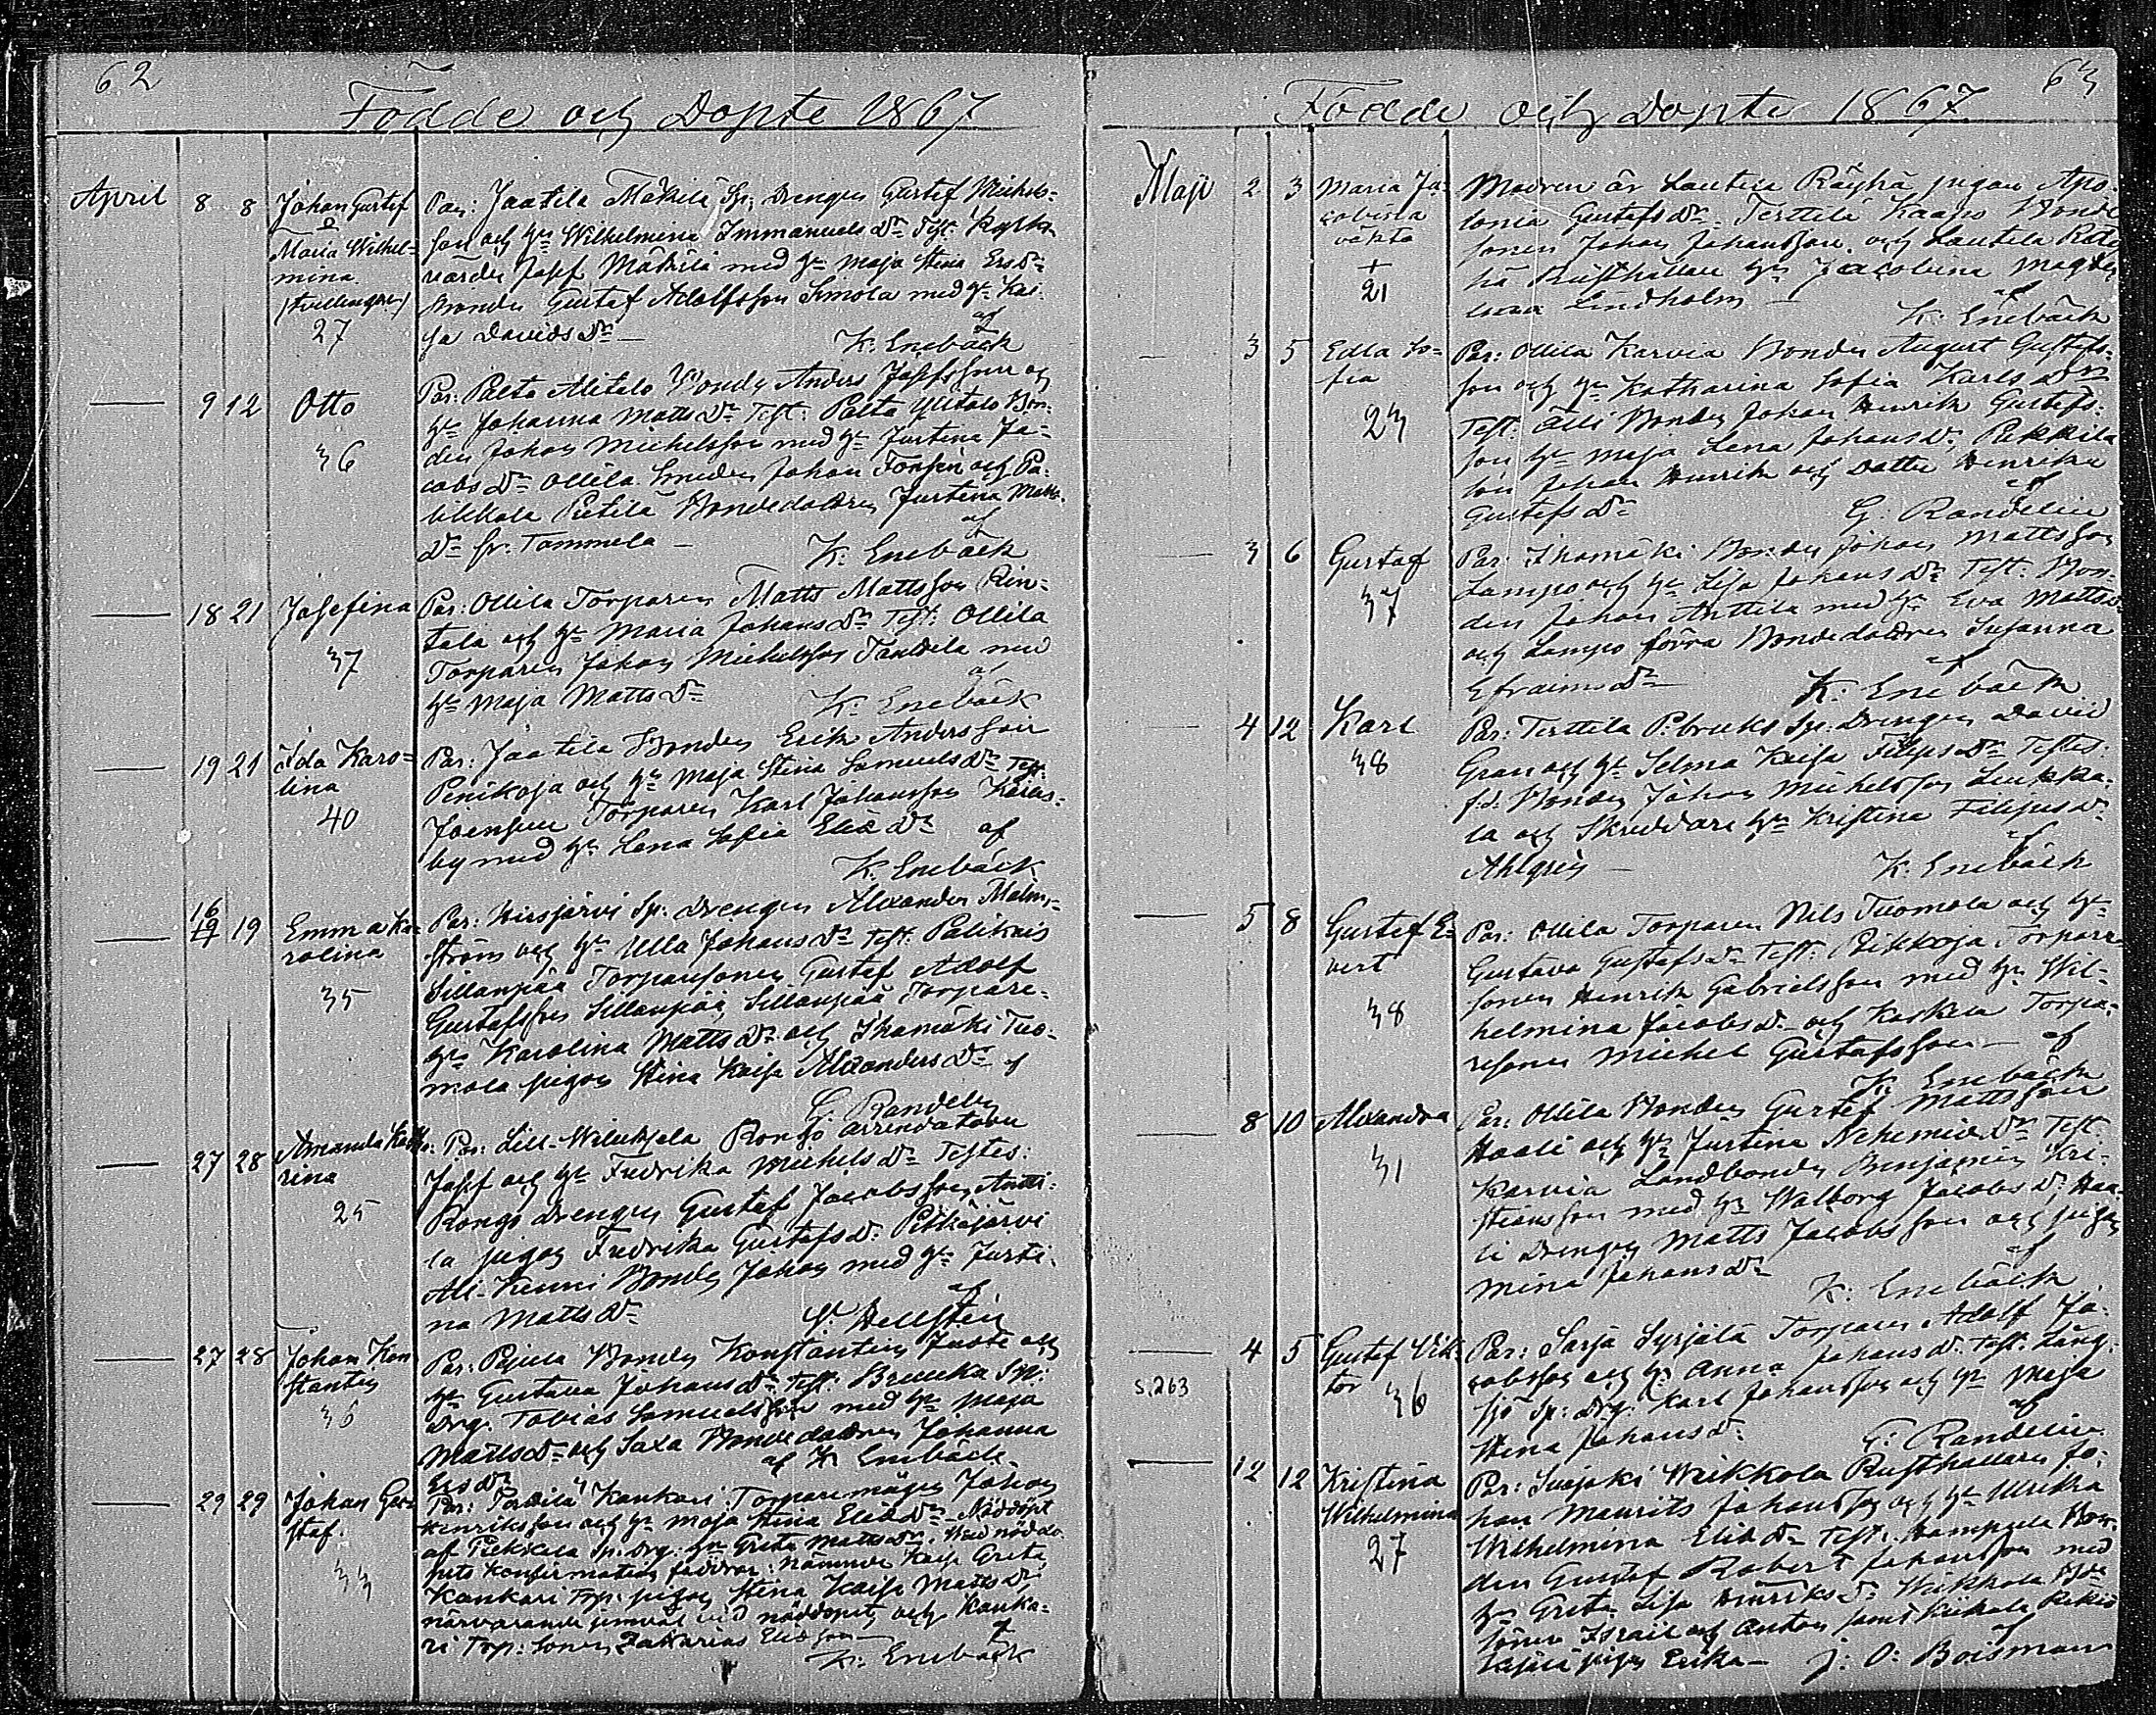 62
Födde och Döpte 1867
April 8 8 Johan Gustef Par: Jaatila Mäkilä Sp: Drengen Gustef Michels=
o son och hu Wilhelmina Immanuels Dr Test: Kyrko
Maria Wilhel= värden Josef Mäkilä med hu Maja Stina Ers Dr
mina Bonden Gustaf Adolfsson Simola med hu Kai=
(tvillingar) sa Davids Dr — af
27 K: Enebäck
— 9 12 Otto Par: Palta Alitalo Bonden Anders Josefsson och
hu Johanna Matts Dr Test: Palta Ylitalo Bon=
36 den Johan Michelsson med hu Justina Ja=
cobs Dr Ollila Smeden Johan Forsén och Pa=
likkala Pietilä Bondedottren Justina Matts
Dr fr. Tammela — af K: Enebäck
— 18 21 Josefina Par: Ollila Torparen Matts Mattsson Rin=
tala och hu Maria Johans Dr Test: Ollila
37 Torparen Johan Michelsson Tandila med
hu Maja Matts Dr af K: Enebäck
— 19 21 Ida Karo= Par: Jaatila Bonden Erik Andersson
lina Penikoja och hu Maja Stina Samuels Dr Test:
40 Joensuu Torparen Karl Johansson Karis=
by med hu Lena Sofia Eliæ Dr af
K. Enebäck
16
— 19 19 Emma Ka= Par: Kirsjärvi Sp: Drengen Alexander Malm=
rolina ström och hu Ulla Johans Dr Test: Palikais
35 Sillanpää Torparsonen Gustaf Adolf
Gustafsson Sillanpää, Sillanpää Torpare=
hu Karolina Matts Dr och Ihamäki Tuo=
mola pigan Stina Kaisa Alexanders Dr af
G. Randelin
— 27 28 Amanda Katha= Par: Lill-Wiluksela Rongo arrendatorn
rina Josef och hu Fredrika Michels Dr Testes:
25 Rongo drengen Gustaf Jacobsson, Antti=
la pigan Fredrika Gustafs Dr Pitkäjärvi
Ali-Kunni Bonden Johan med hu Justi=
na Matts Dr af Hellstén
— 27 28 Johan Kon= Par: Pajula Bonden Konstantin Juste och
stantin hu Gustava Johans Dr Test: Sp:
36 Drg. Tobias Samuelsson med hu Maja
Matts Dr och Saxa Bondedottren Johanna
Ers Dr af K: Enebäck
— 29 29 Johan Gu= Par: Tordila Kankari Torparemågen Johan
staf. Henriksson och hu Maja Stina Eliæ Dr Nöddöpt
33 af Pekkala Sp: drg: hu Greta Matts Dr. Wid nöddo=
pets konfirmation faddrar: nämnde Kaisa Greta
Kankari Torp: pigan Stina Kaisa Matts Dr
närvarande jemväl vid nöddopet och Kanka=
ri Torp: Sonen Zakarias Eliæson — af
K: Enebäck
63
Födde och Döpte 1867.
Maji 2 3 Maria Ja= Modren är Lautela Räyhä pigan Apo=
cobina lonia Gustafs Dr Terttilä Kaapo Bonde
oäkta sonen Johan Johansson och Lautela Räy=
+ hä Rusthållare hu Jacobina Magda=
21 lena Lindholm — af K: Enebäck
— 3 5 Edla So= Par: Ollila Karvia Bonden August Gustafs=
fia son och hu Katharina Sofia Karls Dr
23 Test: Ölli Bonden Johan Henrik Gustafs=
son hu Maja Lena Johans Dr, Pekkila
son Johan Henrik och Dotter Henrika
Gustafs Dr af G: Randelin
— 3 6 Gustaf Par: Ihamäki Bonden Johan Mattsson
Lampo och hu Lisa Johans Dr Test: Bon=
37 den Johan Anttila med hu Eva Matts Dr
och Lampo förra Bondedottren Susanna
Efraims Dr af K: Enebäck
— 4 12 Karl Par: Terttila P:bruks Sp: Drengen David
38 Gran och hu Selma Kaisa Filips Dr Testes:
f.d. Bonden Johan Michelsson Leikka=
la och Skreddare hu Kristina Filipus Dr
Ahlgrén — af K: Enebäck
— 5 8 Gustaf E= Par: Ollila Torparen Nils Tuomola och hu
vert Gustava Gustafs Dr Test: Rikkoja Torpare
sonen Henrik Gabrielsson med hu Wil=
38 helmina Jacobs Dr och Koskua Torpa=
resonen Michel Gustafsson — af
K. Enebäck
— 8 10 Alexandra Par: Ollila Bonden Gustaf Mattsson
Haali och hu Justina Nehemiæ Dr Test:
31 Karvia Landbonden Benjamin Kri=
stiansson med hu Walborg Jacobs Dr, Haa=
li Drengen Matts Jacobsson och pigan
Mina Johans Dr af K: Enebäck
— 4 5 Gustaf Vik= Par: Sarja Syrjälä Torparen Adolf Ja=
tor cobsson och hu Anna Johans Dr Test: Lång=
s.263 36 sjö Sp: drg: Karl Johansson och hu Maja
Stina Johans Dr af G: Randelin
— 12 12 Kristina Par: Suojoki Weikkola Rusthållaren Jo=
Wilhelmina han Maurits Johansson och hu Ulrika
27 Wilhelmina Eliæ Dr Test: Hampula Bon=
den Gustaf Robert Johansson med
hu Greta Lisa Henriks Dr Weikkola
söner Israil och Anton samt
pigan Erika — af J: O: Boisman